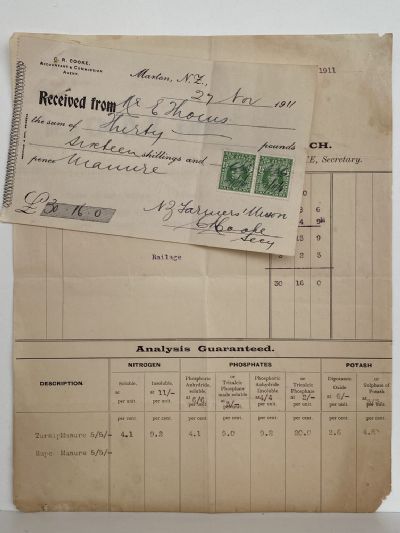 C. R. COOKE,
ACCOUNTANT & COMMISSION
AGENT.
Marton, N.Z.,
27 Nov 1911
Received from Mr E Thoms
the sum of Thirty pounds
sixteen shillings and
pence Manure
£30-16-0
NZ Farmers' Union
CRCooke
Secy
1911
CH.
E, Secretary.
Railage
30 16 0
Analysis Guaranteed.
NITROGEN PHOSPHATES POTASH
DESCRIPTION.
Soluble. at per unit.
Insoluble. at 11/- per unit.
Phosphoric Anhydride, soluble. per unit.
or Tricalcic Phosphate made soluble per unit.
Phosphoric Anhydride Insoluble at 4/4 per unit.
or Tricalcic Phosphate at 2/- per unit.
Dipotassic Oxide at 6/- per unit.
or Sulphate of Potash per unit.
per cent. per cent. per cent. per cent. per cent. per cent. per cent. per cent.
Turnip Manure 5/5/- 4.1 9.2 4.1 9.0 9.2 20.0 2.6
Rape Manure 5/5/-